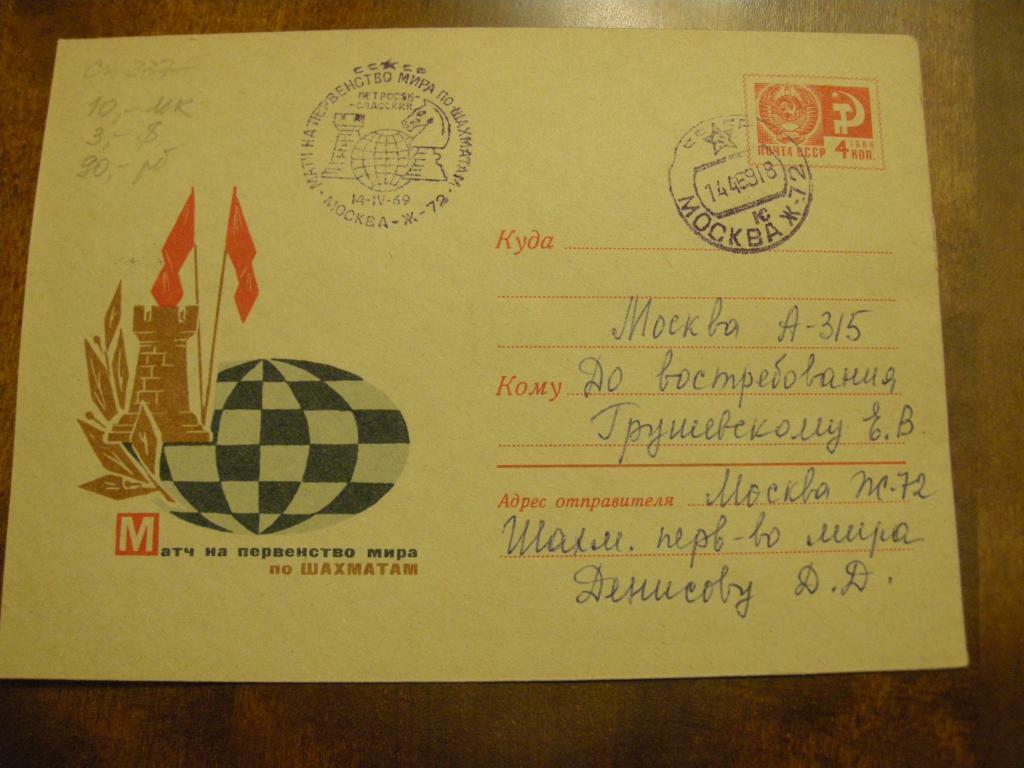 10,- МК
3,- $
90,- р
СССР
МАТЧ НА ПЕРВЕНСТВО МИРА ПО ШАХМАТАМ
ПЕТРОСЯН-
-СПАССКИЙ
14-IV-69
• МОСКВА - Ж - 72 •
МОСКВА Ж-72
ПОЧТА СССР
1966
4 КОП.
Куда
Москва А-315
Кому До востребования
Грушевскому Е.В.
Адрес отправителя Москва Ж-72
Шахм. перв-во мира
Денисову Д.Д.
Матч на первенство мира
по ШАХМАТАМ